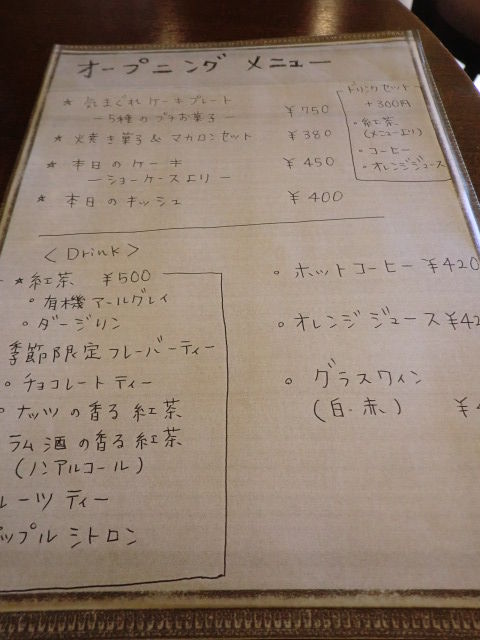 オープニング メニュー
★ 気まぐれケーキプレート ¥750
ー5種のプチお菓子ー
★ 焼き菓子 & マカロンセット ¥380
★ 本日のケーキ ¥450
ーショーケースよりー
★ 本日のキッシュ ¥400
ドリンクセット
+300円
・紅茶
(メニューより)
・コーヒー
・オレンジジュース
<Drink>
★紅茶 ¥500
・有機アールグレイ
・ダージリン
季節限定フレーバーティー
・チョコレートティー
・ナッツの香る紅茶
ラム酒の香る紅茶
(ノンアルコール)
ルーツ ティー
ップル シトロン
・ホットコーヒー ¥420
・オレンジジュース ¥42
・グラスワイン
(白・赤) ¥4